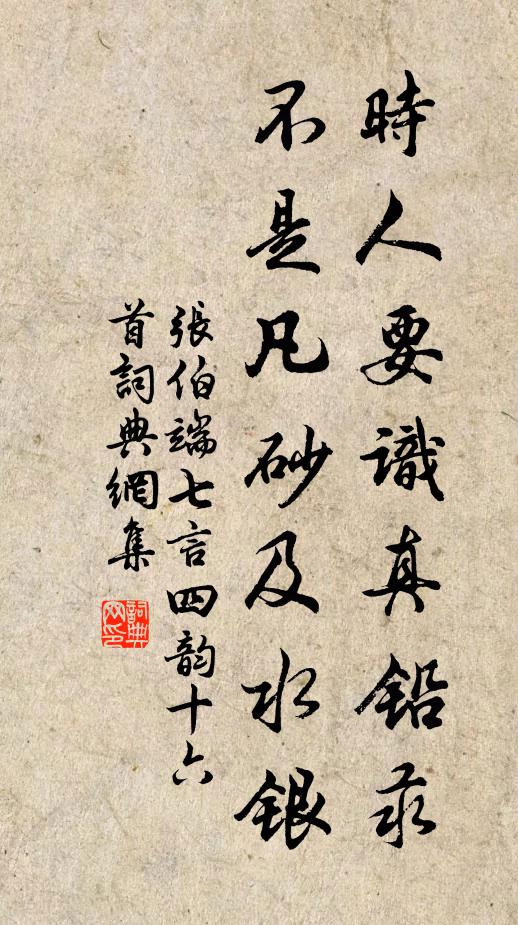 時人要識真鉛汞
不是凡砂及水銀
張伯端七言四韵十六
首詞典網集
詞典
网印